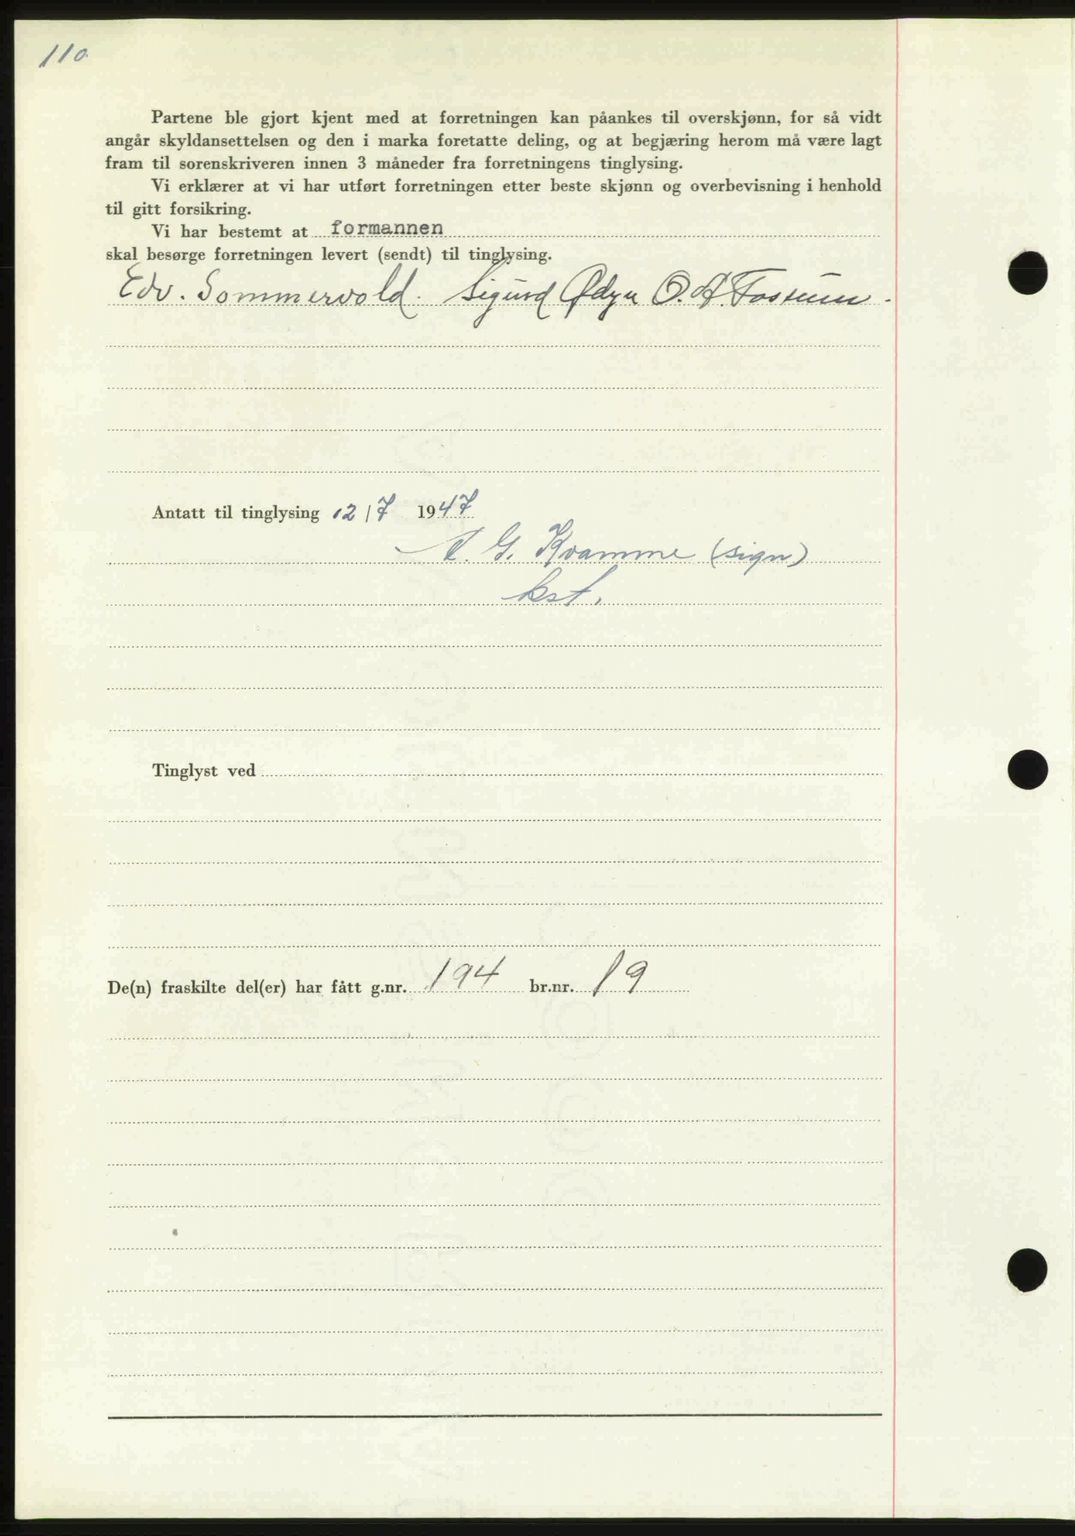 110
Partene ble gjort kjent med at forretningen kan påankes til overskjønn, for så vidt
angår skyldansettelsen og den i marka foretatte deling, og at begjæring herom må være lagt
fram til sorenskriveren innen 3 måneder fra forretningens tinglysing.
Vi erklærer at vi har utført forretningen etter beste skjønn og overbevisning i henhold
til gitt forsikring.
Vi har bestemt at formannen
skal besørge forretningen levert (sendt) til tinglysing.
Edv. Sommervold. Sigurd Ødyn O. A. Fossum.
Antatt til tinglysing 12/7 1947
G. Kvamme (sign)
kst.
Tinglyst ved
De(n) fraskilte del(er) har fått g.nr. 194 br.nr. 19